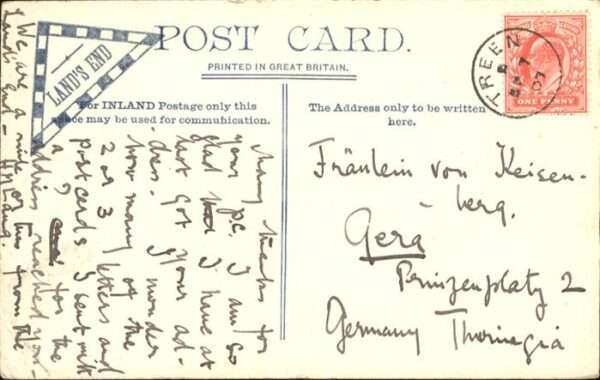 POST CARD.
PRINTED IN GREAT BRITAIN.
LAND'S END
For INLAND Postage only this
space may be used for communication.
The Address only to be written
here.
TREEN
07
ONE PENNY
Fräulein von Keisen-
berg.
Gera
Prinzenplatz 2
Germany Thuringia
Many thanks for
your p.c. I am so
glad that I have at
last got your ad-
dress. I wonder
how many of the
2 or 3 letters and
postcards I sent with
a ? for the
address reached you.
We are a mile or two from the
Land's End